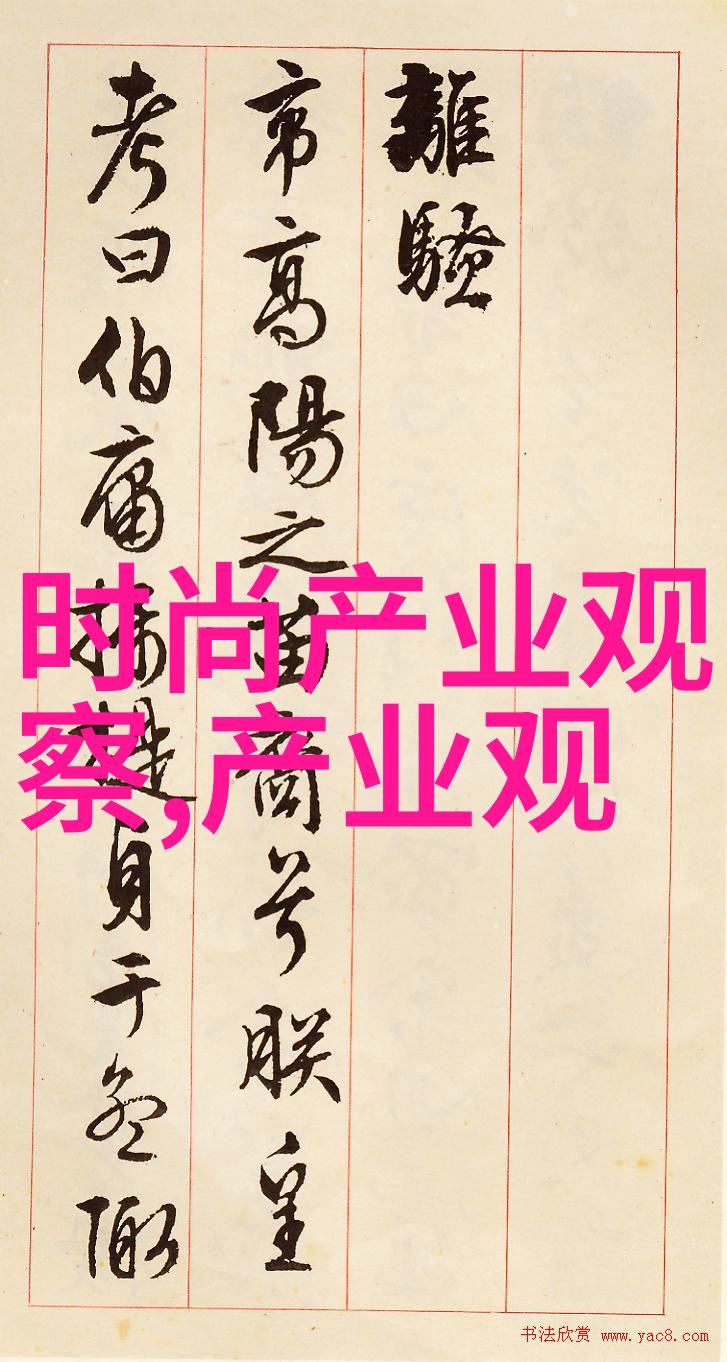 離騷
帝高陽之苗裔兮朕皇
考曰伯庸攝提貞于孟陬
时尚产业观
察,产业观
书法欣赏 www.yac8.com